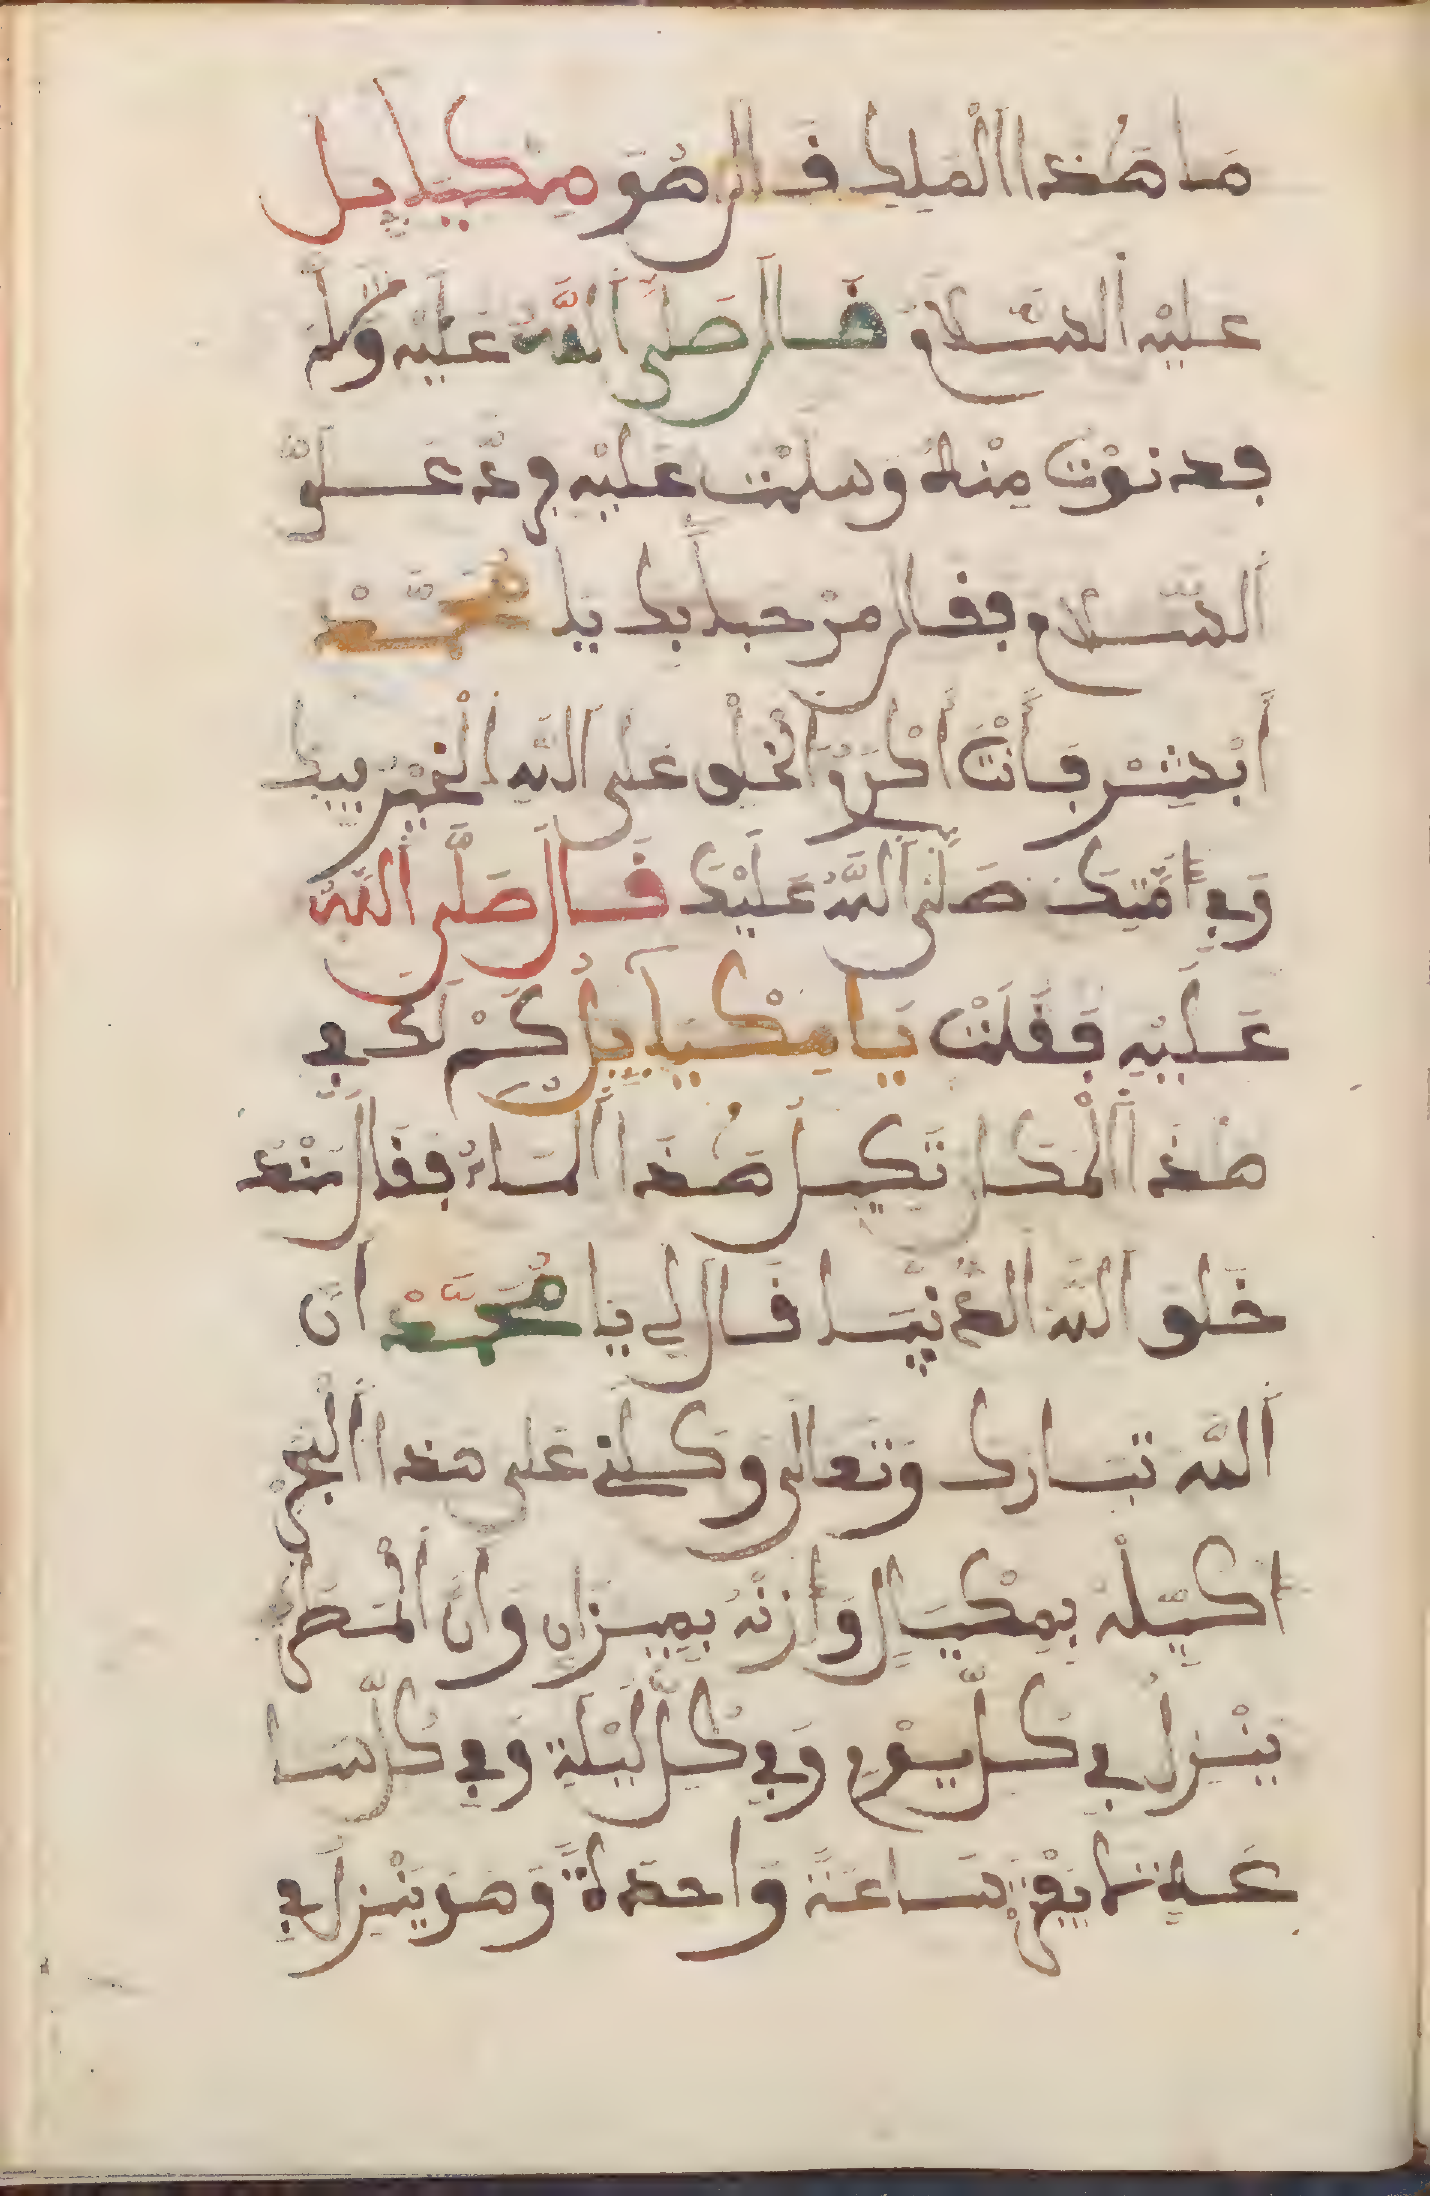 مَا هَٰذَا الْمَلِكُ قَالَ هُوَ مِيكَيَايِل
عليْه السّلام قَال صَلى اللَّهُ عَليْه وسلم
فدنوْت مِنْهُ وَسلمْت عَليْه فردّ عَلىّ
السّلام فقال مرْحباً بك يا مُحَمَّدْ
أبْشِرْ فَأَنْتَ أَكْرَم الخلْق عَلى اللَّهِ الْخَيْر بيك
وَفِي امّتِكَ صَلى اللَّهُ عَليْكَ قَالَ صَلَّى اللَّهُ
عَليْهِ فَقَلْت يَا مِكْيَايِيلُ كَمْ لَكَ فِي
هَذَا الْمَكَان تَكِيل هَٰذَا الْمَاءَ فَقَالَ مُنْذُ
خَلق اللَّهُ الدُّنْيَا قَالَ لي يا مُحَمَّدْ انَ
اللَّه تبَارك وَتَعَالَى وَكلنِي عَلى هذا البَحْر
اكيّلهُ بِمِكْيَالٍ وَازنُهُ بِمِيزانِ وَانَ الْمَطر
ينْزلُ فِي كلّ يوْمٍ وَفِي كُلّ ليْلَةِ وَفِي كُلّ سَا
عَةٍ مَا يَفْتر سَاعَةً وَاحدَةً وَهوَ يَنْزِلَ فِي